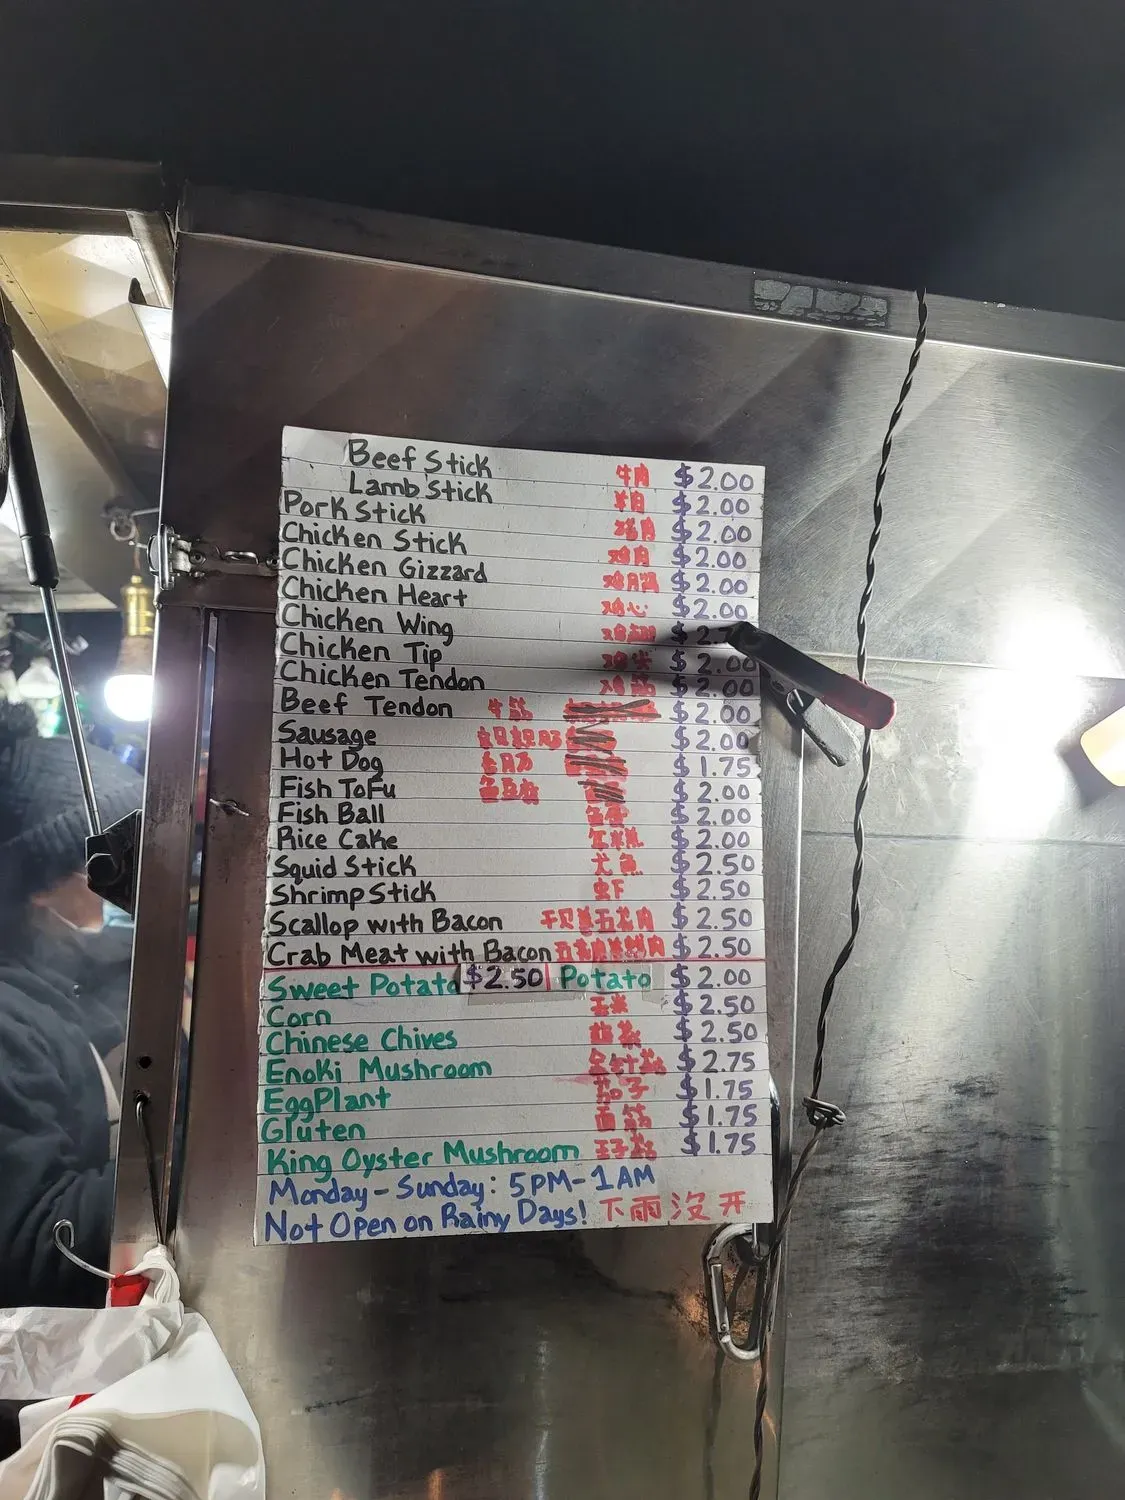 Beef Stick 牛肉 $2.00
Lamb Stick 羊肉 $2.00
Pork Stick 猪肉 $2.00
Chicken Stick 鸡肉 $2.00
Chicken Gizzard $2.00
Chicken Heart 鸡心 $2.00
Chicken Wing 鸡翅
Chicken Tip 鸡尖 $2.00
Chicken Tendon 鸡筋 $2.00
Beef Tendon 牛筋 $2.00
Sausage $2.00
Hot Dog $1.75
Fish ToFu 鱼豆腐 $2.00
Fish Ball 鱼蛋 $2.00
Rice Cake 年糕 $2.00
Squid Stick 尤鱼 $2.50
Shrimp Stick 虾 $2.50
Scallop with Bacon 干贝 五花肉 $2.50
Crab Meat with Bacon 五花肉 $2.50
Sweet Potato $2.50 Potato $2.00
Corn 玉米 $2.50
Chinese Chives $2.50
Enoki Mushroom 金针菇 $2.75
EggPlant 茄子 $1.75
Gluten 面筋 $1.75
King Oyster Mushroom 王子菇 $1.75
Monday - Sunday: 5PM-1AM
Not Open on Rainy Days! 下雨没开